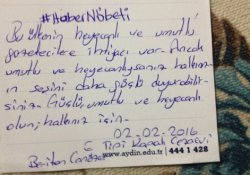 #HaberNöbeti
Bu ülkenin heyecanlı ve umutlu
gazetecilere ihtiyacı var. Ancak
umutlu ve heyecanlıysanız halkınız-
ın sesini daha güçlü duyurabilir-
siniz. Güçlü, umutlu ve heyecanlı
olun; halkınız için.
02.02.2016
E Tipi Kapalı Cezaevi
Beritan
www.aydin.edu.tr | 444 1 428